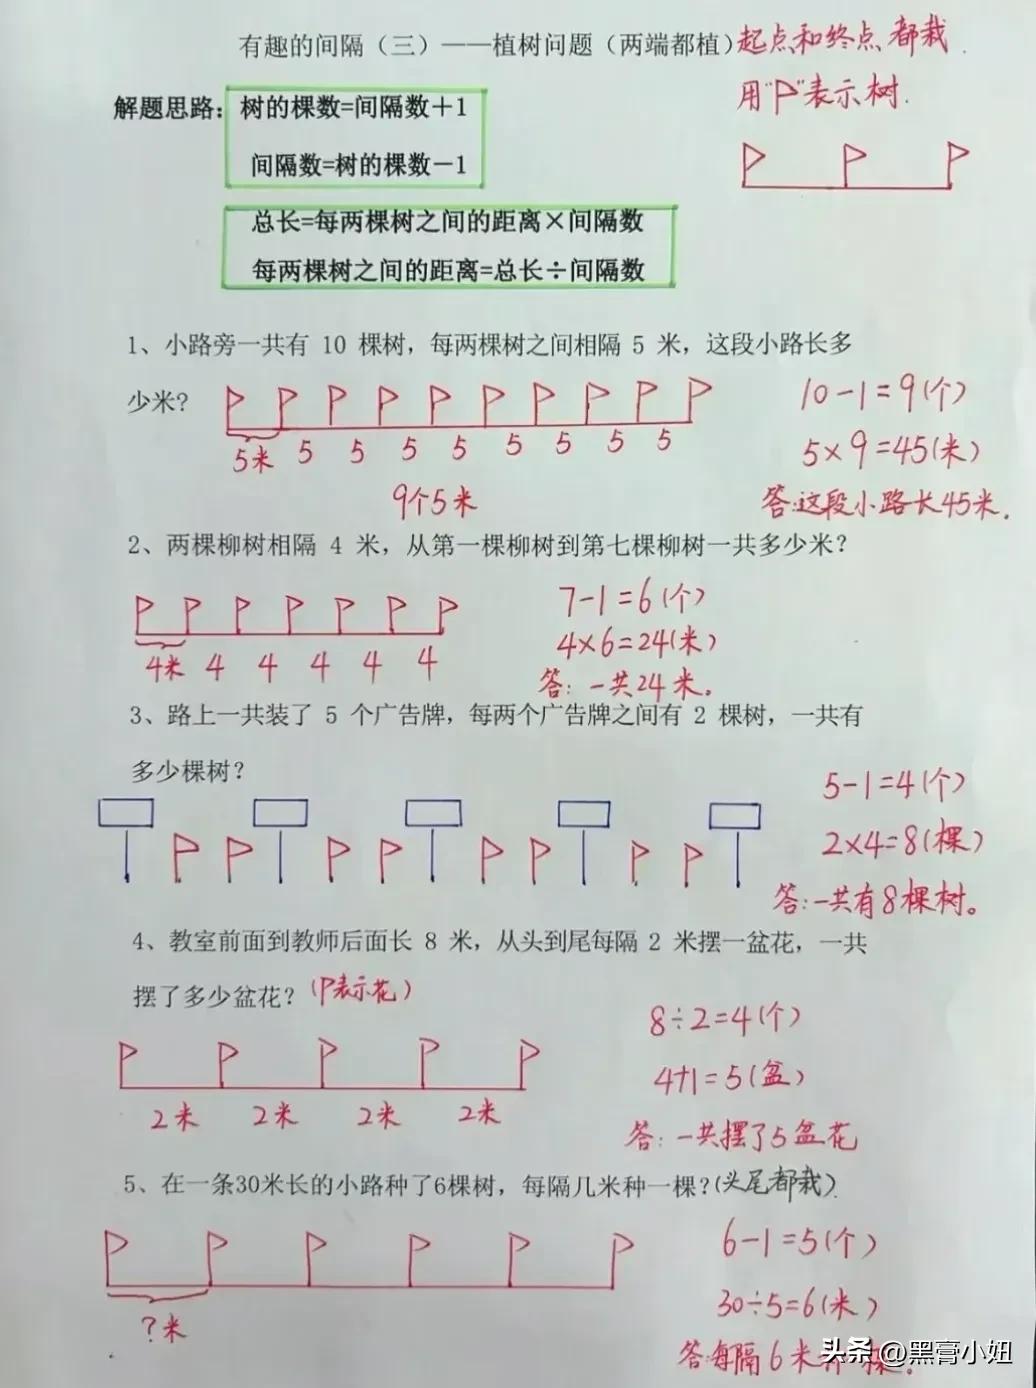 有趣的间隔（三）——植树问题（两端都植）起点和终点都栽.
用"P"表示树.
解题思路：树的棵数=间隔数＋1
间隔数=树的棵数－1
总长=每两棵树之间的距离×间隔数
每两棵树之间的距离=总长÷间隔数
1、小路旁一共有 10 棵树，每两棵树之间相隔 5 米，这段小路长多
少米？
10-1=9(个)
5米 5 5 5 5 5 5 5 5
5×9=45(米)
9个5米
答:这段小路长45米.
2、两棵柳树相隔 4 米，从第一棵柳树到第七棵柳树一共多少米？
7-1=6(个)
4米 4 4 4 4 4
4×6=24(米)
答: 一共24米。
3、路上一共装了 5 个广告牌，每两个广告牌之间有 2 棵树，一共有
多少棵树？
5-1=4(个)
2×4=8(棵)
答:一共有8棵树。
4、教室前面到教师后面长 8 米，从头到尾每隔 2 米摆一盆花，一共
摆了多少盆花？(P表示花)
8÷2=4(个)
2米 2米 2米 2米
4+1=5(盆)
答: 一共摆了5盆花
5、在一条30米长的小路种了6棵树，每隔几米种一棵？(头尾都栽)
6-1=5(个)
?米
30÷5=6(米)
答:每隔6米
头条 @黑膏小妞